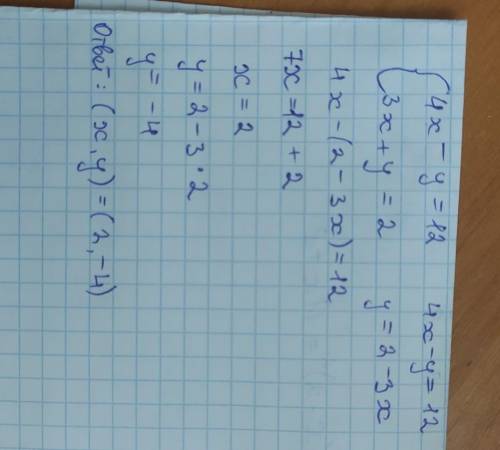 {4x - y = 12   4x - y = 12
{3x + y = 2   y = 2 - 3x
4x - (2 - 3x) = 12
7x = 12 + 2
x = 2
y = 2 - 3 · 2
y = -4
Ответ: (x, y) = (2, -4)